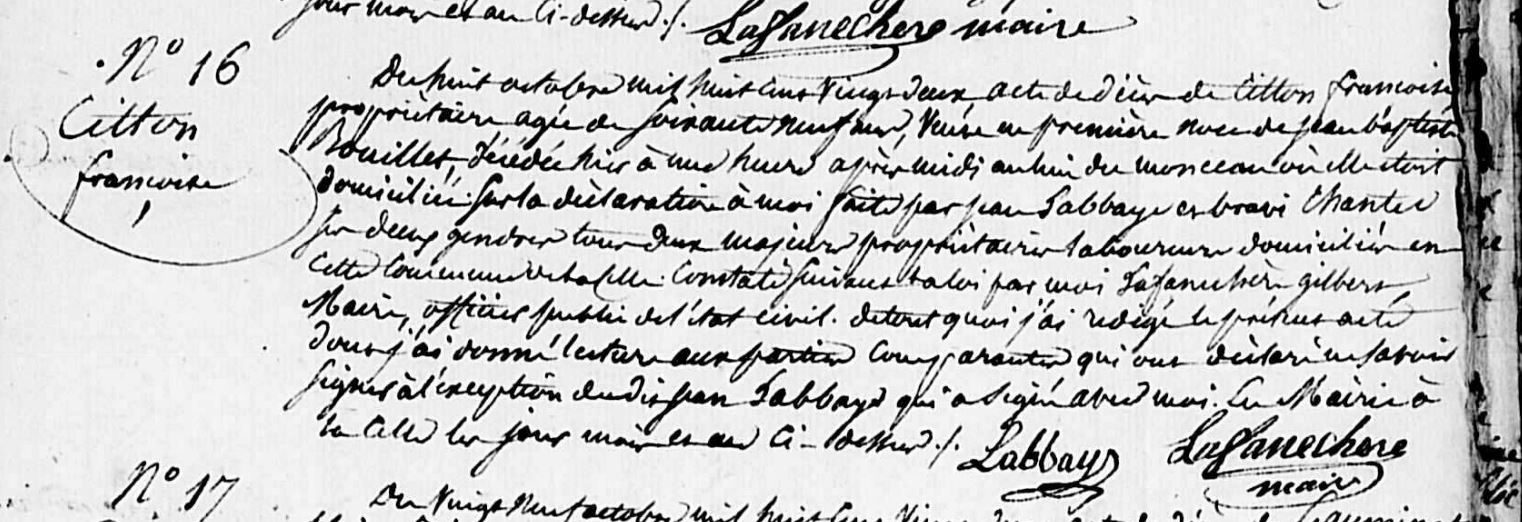 jour mois et an Ci-dessus ./. Lafanechere maire
N° 16
Citton
francoise
Du huit octobre mil huit cent Vingt deux, acte de décès de Citton francoise
propriètaire agée de soixante neuf ans, Veuve en première noce de jean baptiste
Bouillet, décédée hier à une heure après midi au lieu du monceau où elle etoit
domiciliée. Sur la dèclaration à moi faite par jean Labbaye et Chantee
ses deux gendres tous deux majeurs propriètaires laboureurs domiciliés en
Cette Commune de la Celle. Constaté suivant la loi par moi Lafanechère gilbert,
Maire, officier public de l'état civil. de tout quoi j'ai redigé le présent acte
dont j'ai donné lecture aux parties Comparantes qui ont déclaré ne savoir
signer à l'exception du dit jean Labbaye qui a signé avec moi. En Mairie à
la Celle les jour mois et an Ci-dessus ./. Labbaye Lafanechere
maire
N° 17
Du Vingt Neuf octobre mil huit Cent Vingt